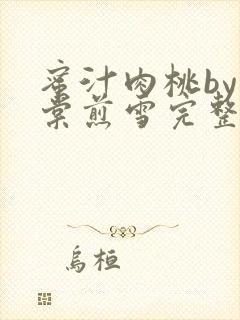 蜜汁肉桃by
棠煎雪完整
乌桓